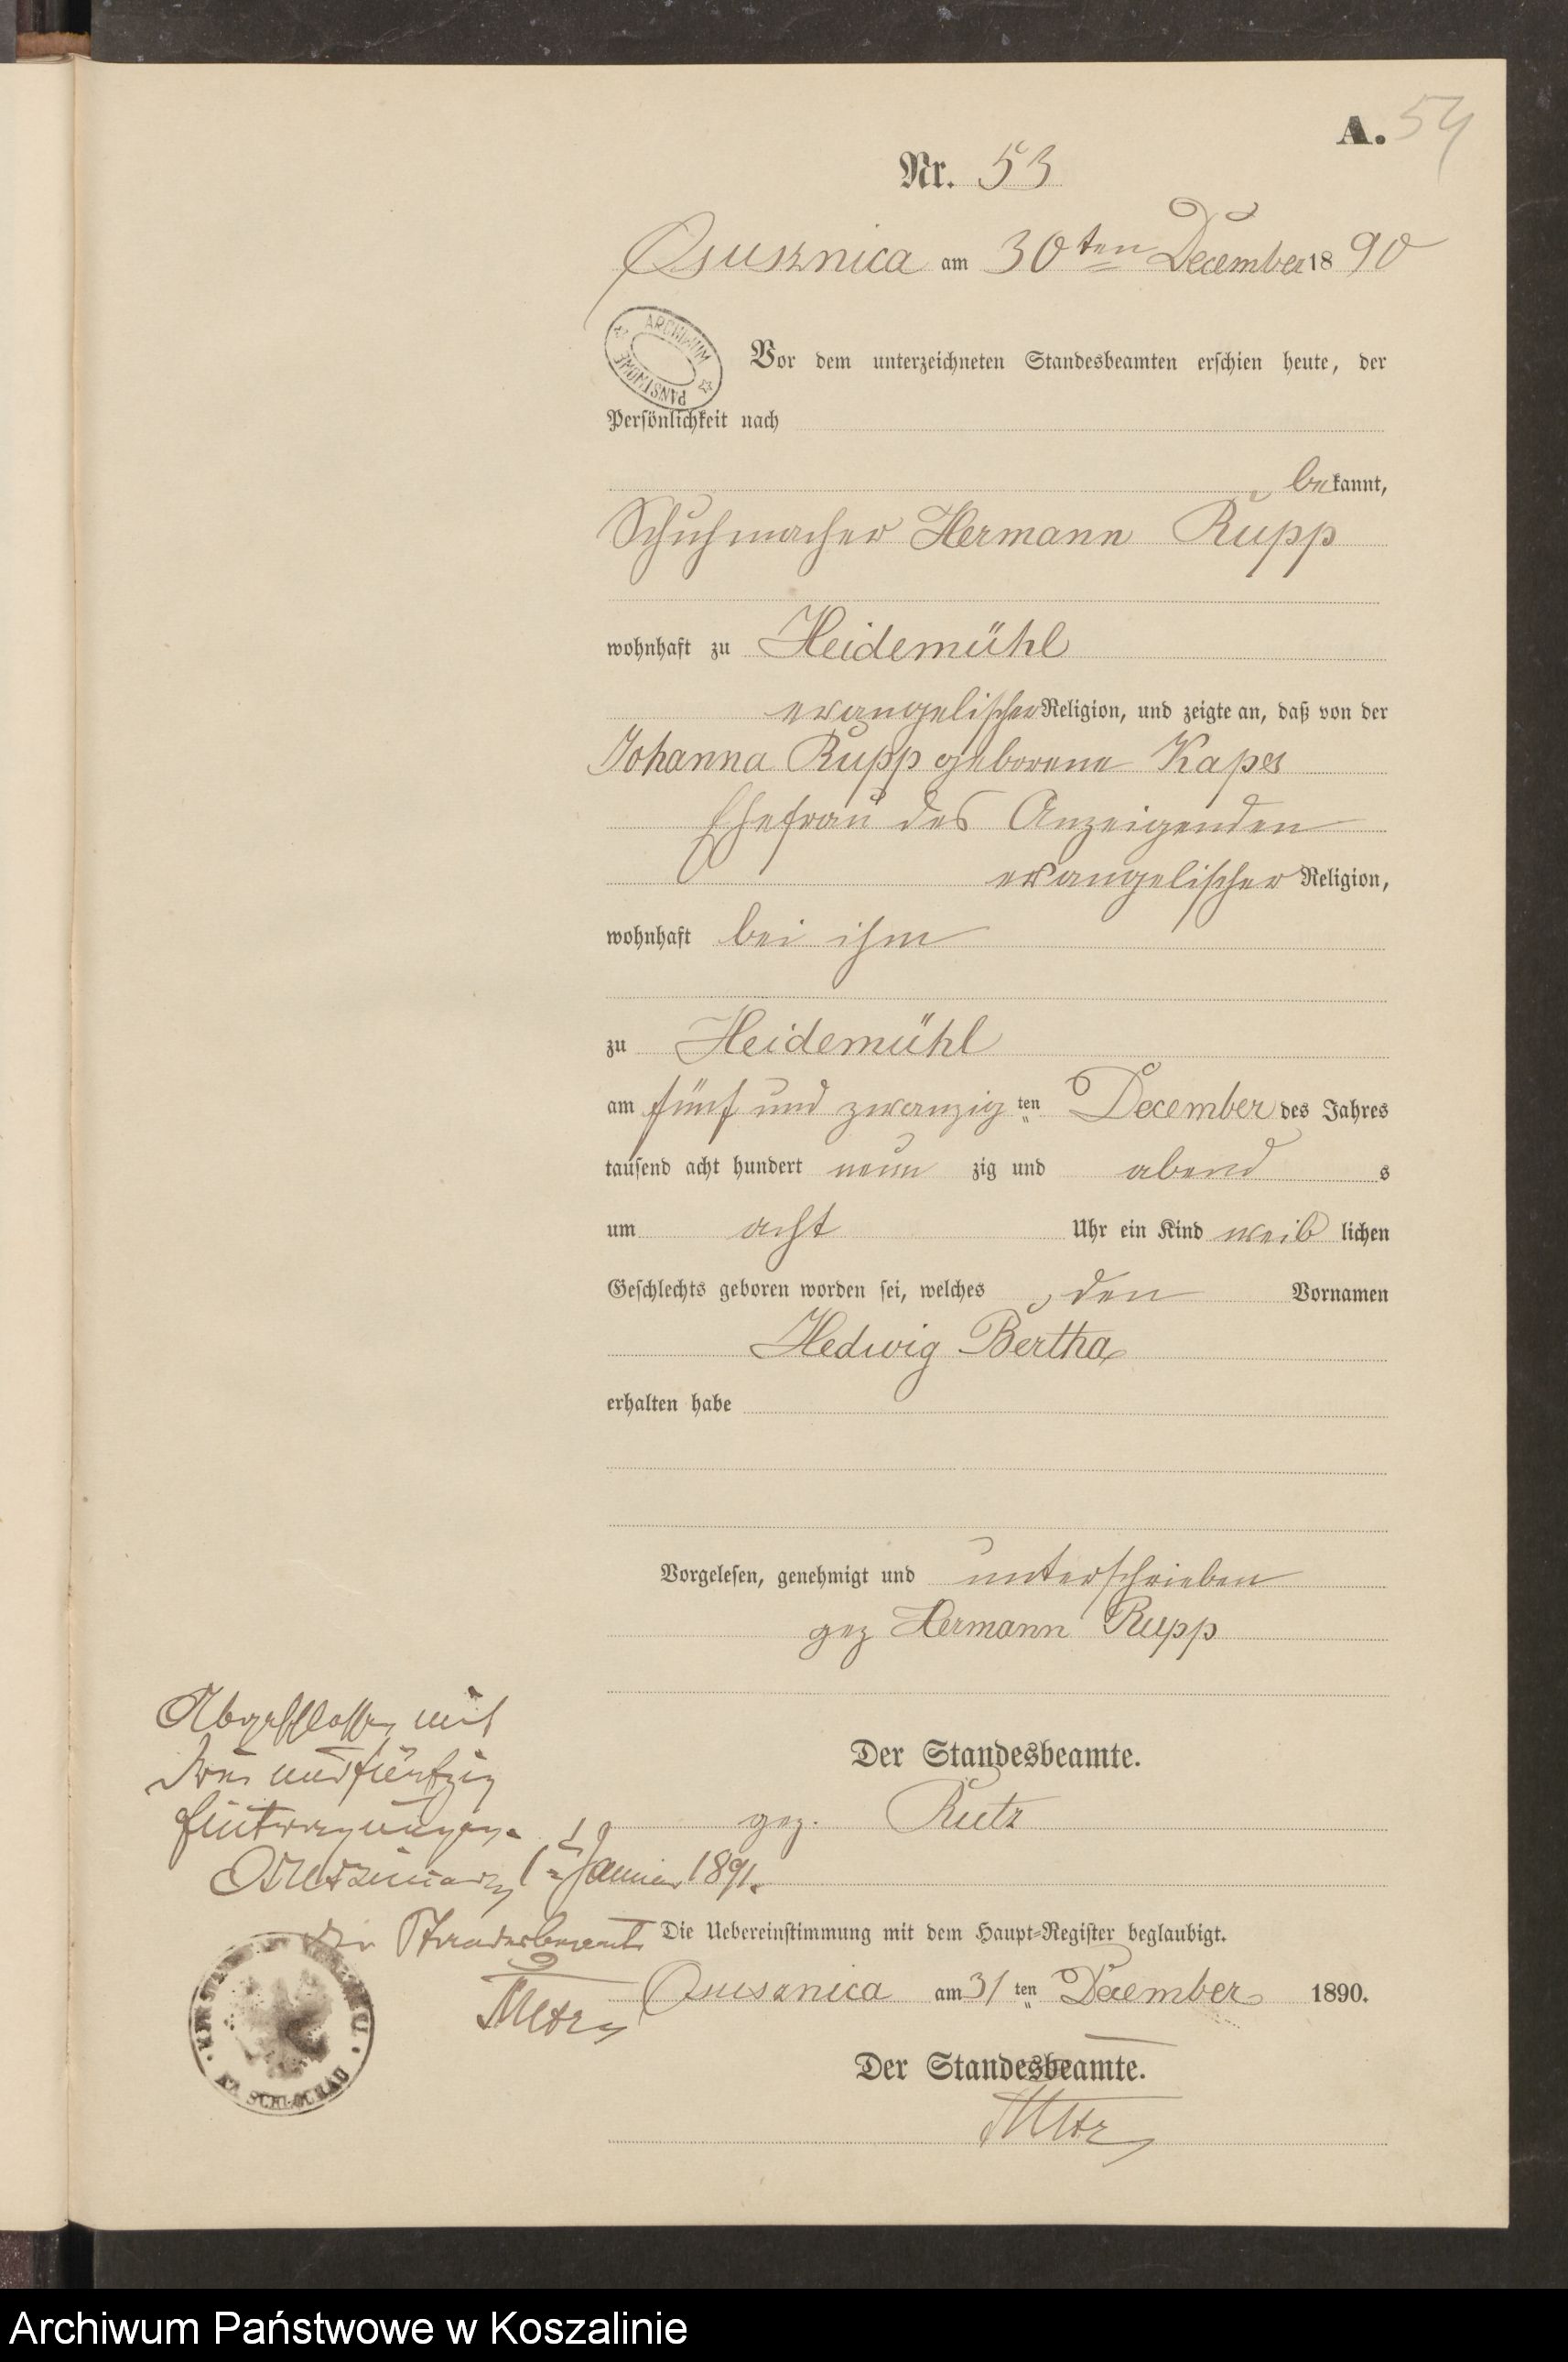 A. 54
Nr. 53
am 30ten December 1890
ARCHIWUM PAŃSTWOWE
Vor dem unterzeichneten Standesbeamten erschien heute, der
Persönlichkeit nach
bekannt,
Schuhmacher Hermann Rupp
wohnhaft zu Heidemühl
evangelischer Religion, und zeigte an, daß von der
Johanna Rupp geborene
Ehefrau des Anzeigenden
evangelischer Religion,
wohnhaft bei ihm
zu Heidemühl
am fünf und zwanzig ten December des Jahres
tausend acht hundert neun zig und abend s
um acht Uhr ein Kind weib lichen
Geschlechts geboren worden sei, welches den Vornamen
Hedwig Bertha
erhalten habe
Vorgelesen, genehmigt und unterschrieben
gez Hermann Rupp
Der Standesbeamte.
gez.
Abgeschlossen mit
drei und fünfzig
Eintragungen.
1 Januar 1891.
Der Standesbeamte
Die Uebereinstimmung mit dem Haupt-Register beglaubigt.
am 31 ten December 1890.
Der Standesbeamte.
SCHLOCHAU
Archiwum Państwowe w Koszalinie